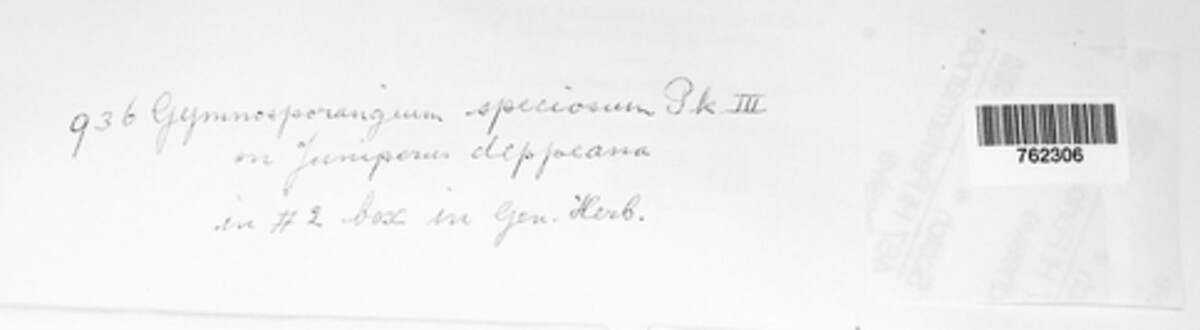 936 Gymnosporangium speciosum Pk III
on Juniperus deppeana
in # 2 box in Gen. Herb.
762306